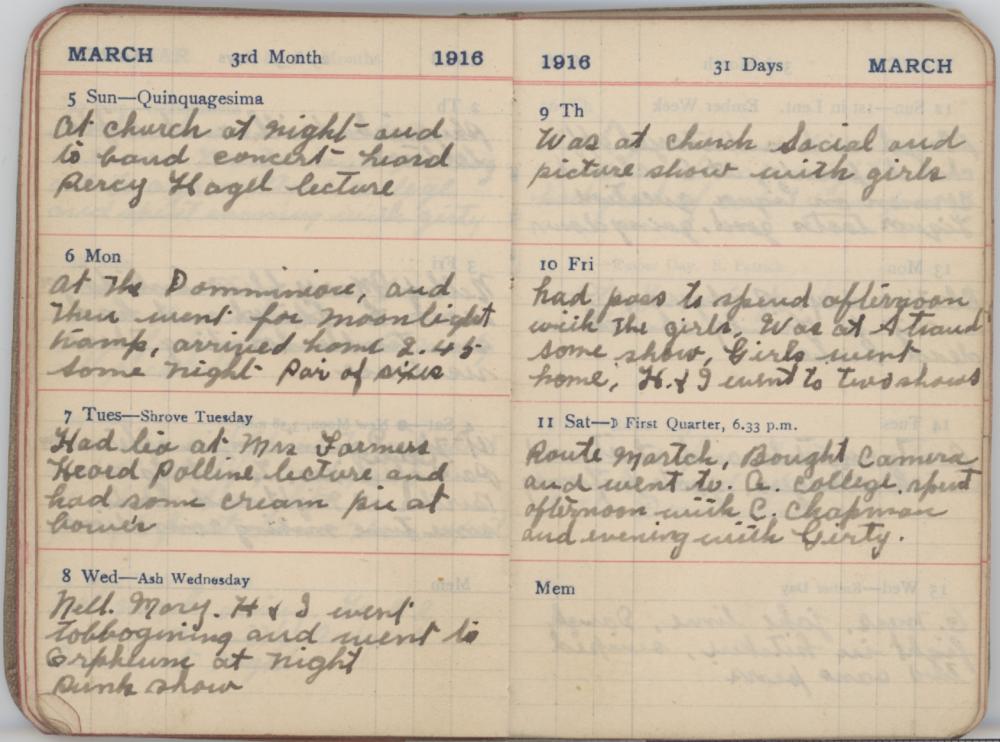 MARCH 3rd Month 1916
5 Sun—Quinquagesima
At church at night and
to band concert heard
Percy Hagel lecture
6 Mon
At The Domminion, and
Then went for moonlight
tramp, arrived home 2.45
Some night Pair of sixes
7 Tues—Shrove Tuesday
Had tea at Mrs Farmers
Heard Polline lecture and
had some cream pie at
Bower
8 Wed—Ash Wednesday
Nell. Mary. H & I went
tobbogining and went to
Orpheum at night
Punk show
1916 31 Days MARCH
9 Th
Was at church Social and
picture show with girls
10 Fri
had pass to spend afternoon
with The girls, Was at Strand
some show, Girls went
home, H. & I went to two shows
11 Sat—☽ First Quarter, 6.33 p.m.
Route Martch, Bought Camera
and went to. A. College. spent
afternoon with C. Chapman
and evening with Girty.
Mem